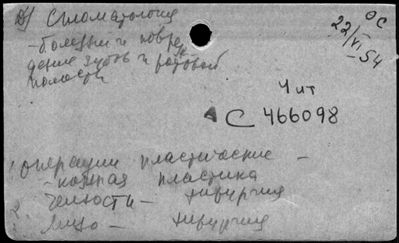 д) Стоматология
ОС
22/VI-54
- болезни и повре
ждение зубов и ротовой
полости
Чит
АС 466098
1. операции пластические -
- кожная пластика
2. Челюсти - хирургия
3. Лицо - хирургия